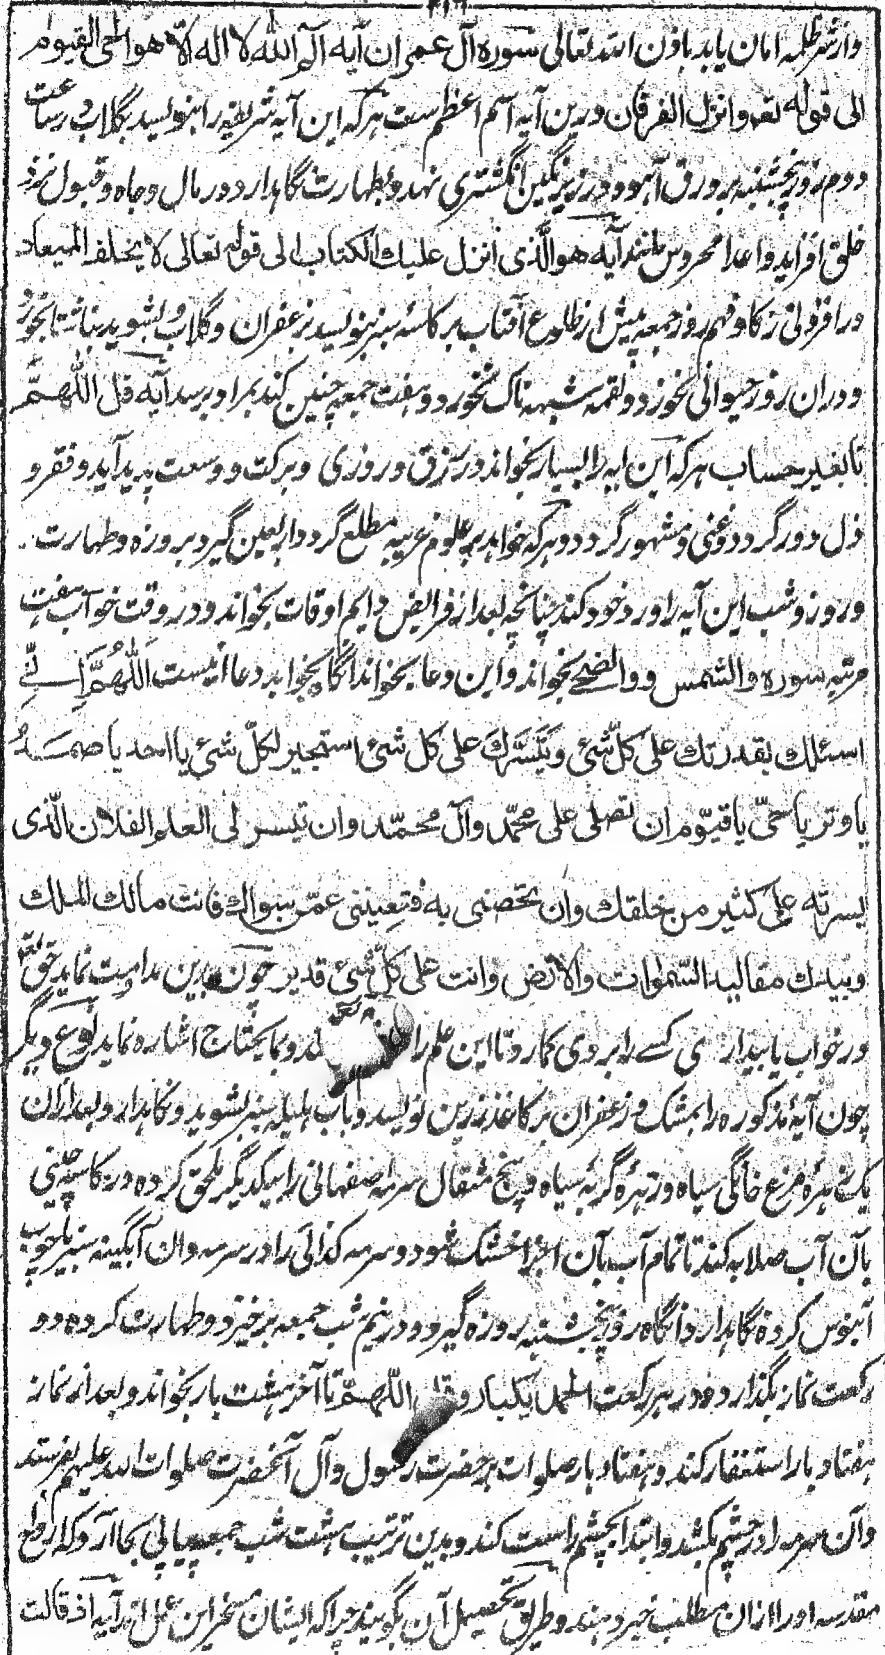 واز شر ظلمه امان یابد باذن الله تعالی سوره آل عمران آیه الم الله لا اله الا هو الحی القیوم
الی قوله تعه وانزل الفرقان درین آیه اسم اعظم ست هر که این آیه شریفه را بنویسد بگلاب در ساعت
دوم روز پنجشنبه بر ورق آهو و در زیر نگین انگشتری نهد و بطهارت نگاهدارد در مال و جاه و قبول نزد
خلق افزاید و از اعدا محروس ماند آیه هو الذی انزل علیک الکتاب الی قوله تعالی لا یخلف المیعاد
در افزونی ذکا و فهم روز جمعه پیش از طلوع آفتاب بر کاسه سبز بنویسد بزعفران و گلاب و بشوید بناشتا بخورد
و دران روز حیوانی نخورد و لقمه شبهه ناک نخورد و هفت جمعه چنین کند بمراد برسد آیه قل اللهم
تا بغیر حساب هر که این آیه را بسیار بخواند در رزق و روزی و برکت و وسعت پدید آید و فقر و
ذل دور گردد و غنی و مشهور گردد و هر که خواهد بر علوم غریبه مطلع گردد اربعین گیرد بروزه و طهارت
و روز و شب این آیه را ورد خود کند چنانچه بعد از فرایض دایم اوقات بخواند و در وقت خواب هفت
مرتبه سوره والشمس و والضحی بخواند و این دعا بخواند آنگاه بخوابد دعا اینست اللهم انی
اسئلک بقدرتک علی کل شیٔ و تیسرک علی کل شیٔ استجیر لکل شیٔ یا احد یا صمد
یا وتر یا حی یا قیوم ان تصلی علی محمد وآل محمد وان تیسر لی العلم الفلان الذی
یسرته علی کثیر من خلقک وان تخصنی به فتعیننی عمن سواک فانت مالک الملک
وبیدک مقالید السموات والارض وانت علی کل شیٔ قدیر چون بدین مداومت نماید حق تعه
در خواب یا بیدار ی کسے را برو می گمارد تا این علم را ند و بما یحتاج اشاره نماید نوع دیگر
چون آیهٔ مذکوره را بمشک و زعفران بر کاغذ زرین نویسد و باب هلیله سبز بشوید و نگاهدارد بعد ازان
یک زهرهٔ مرغ خانگی سیاه و زهرهٔ گربهٔ سیاه و پنج مثقال سرمه صفهانی را بیکدیگر ملحق کرده در کاسه چینی
بآن آب صلابه کند تا تمام آب بآن اجزا خشک شود و سرمه کذائی را در سرمه دان آبگینه سبز با چوب
آبنوس کرده نگاهدارد آنگاه روز پنجشنبه روزه گیرد و در نیم شب جمعه بر خیزد و طهارت کرده دو
رکعت نماز بگذارد و در هر رکعت الحمد یکبار و قل اللهم تا آخر هشت بار بخواند و بعد از نماز
هفتاد بار استغفار کند و هفتاد بار صلوات بر حضرت رسول وآل آنحضرت صلوات الله علیهم بفرستد
وآن سرمه را در چشم بکشد و ابتدا بچشم راست کند و بدین ترتیب هشت شب جمعه پیاپی بجا آرد که ارواح
مقدسه او را ازان مطلب خبر دهند و طریق تحصیل آن بگویند چرا که ایشان مسخر این عمل اند آیه اذ قالت